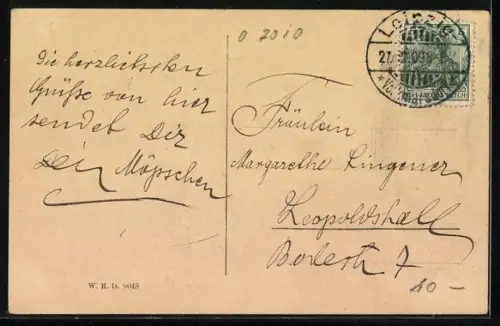 o 2010
Die herzlichsten
Grüße von hier
sendet Dir
Dein Möpschen
W. H. D. 9048
LEIPZIG
Fräulein
Margarethe Lingener
Leopoldshall
Bodestr 7
40 -